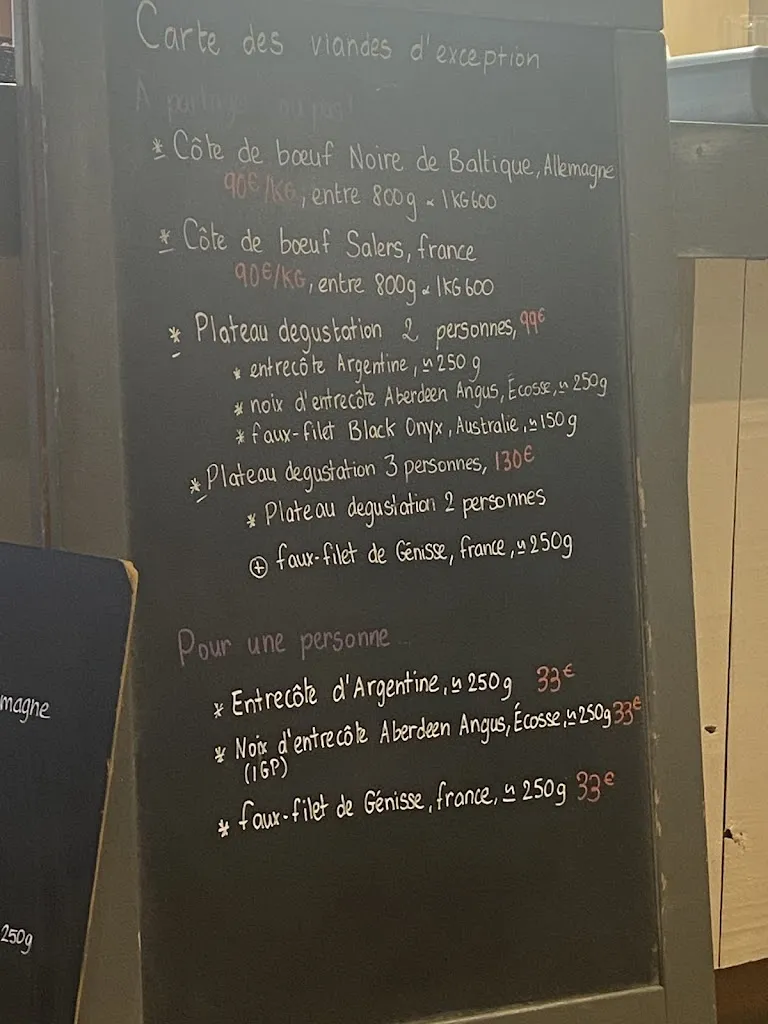 Carte des viandes d'exception
À partager ou pas!
* Côte de bœuf Noire de Baltique, Allemagne
90€/KG, entre 800g ~ 1KG600
* Côte de bœuf Salers, france
90€/KG, entre 800g ~ 1KG600
* Plateau degustation 2 personnes, 99€
* entrecôte Argentine, ≃ 250 g
* noix d'entrecôte Aberdeen Angus, Écosse, ≃ 250g
* faux-filet Black Onyx, Australie, ≃ 150g
* Plateau degustation 3 personnes, 130€
* Plateau degustation 2 personnes
⊕ faux-filet de Génisse, france, ≃ 250g
Pour une personne...
* Entrecôte d'Argentine, ≃ 250 g 33€
* Noix d'entrecôte Aberdeen Angus, Écosse, ≃ 250g 33€
(IGP)
* faux-filet de Génisse, france, ≃ 250g 33€
magne
250g